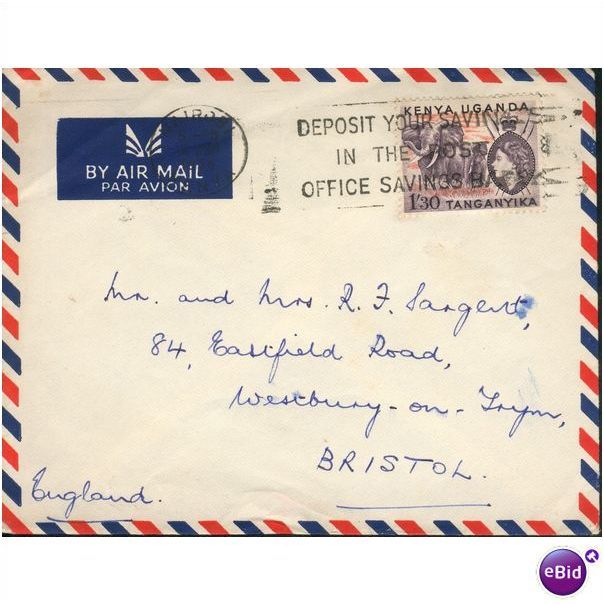 KENYA UGANDA
DEPOSIT YOUR SAVING
IN THE POST
OFFICE SAVINGS
1/30 TANGANYIKA
BY AIR MAIL
PAR AVION
Mr. and Mrs. R. F. Sargent,
84, Eastfield Road,
Westbury-on-Trym,
BRISTOL.
England.
eBid